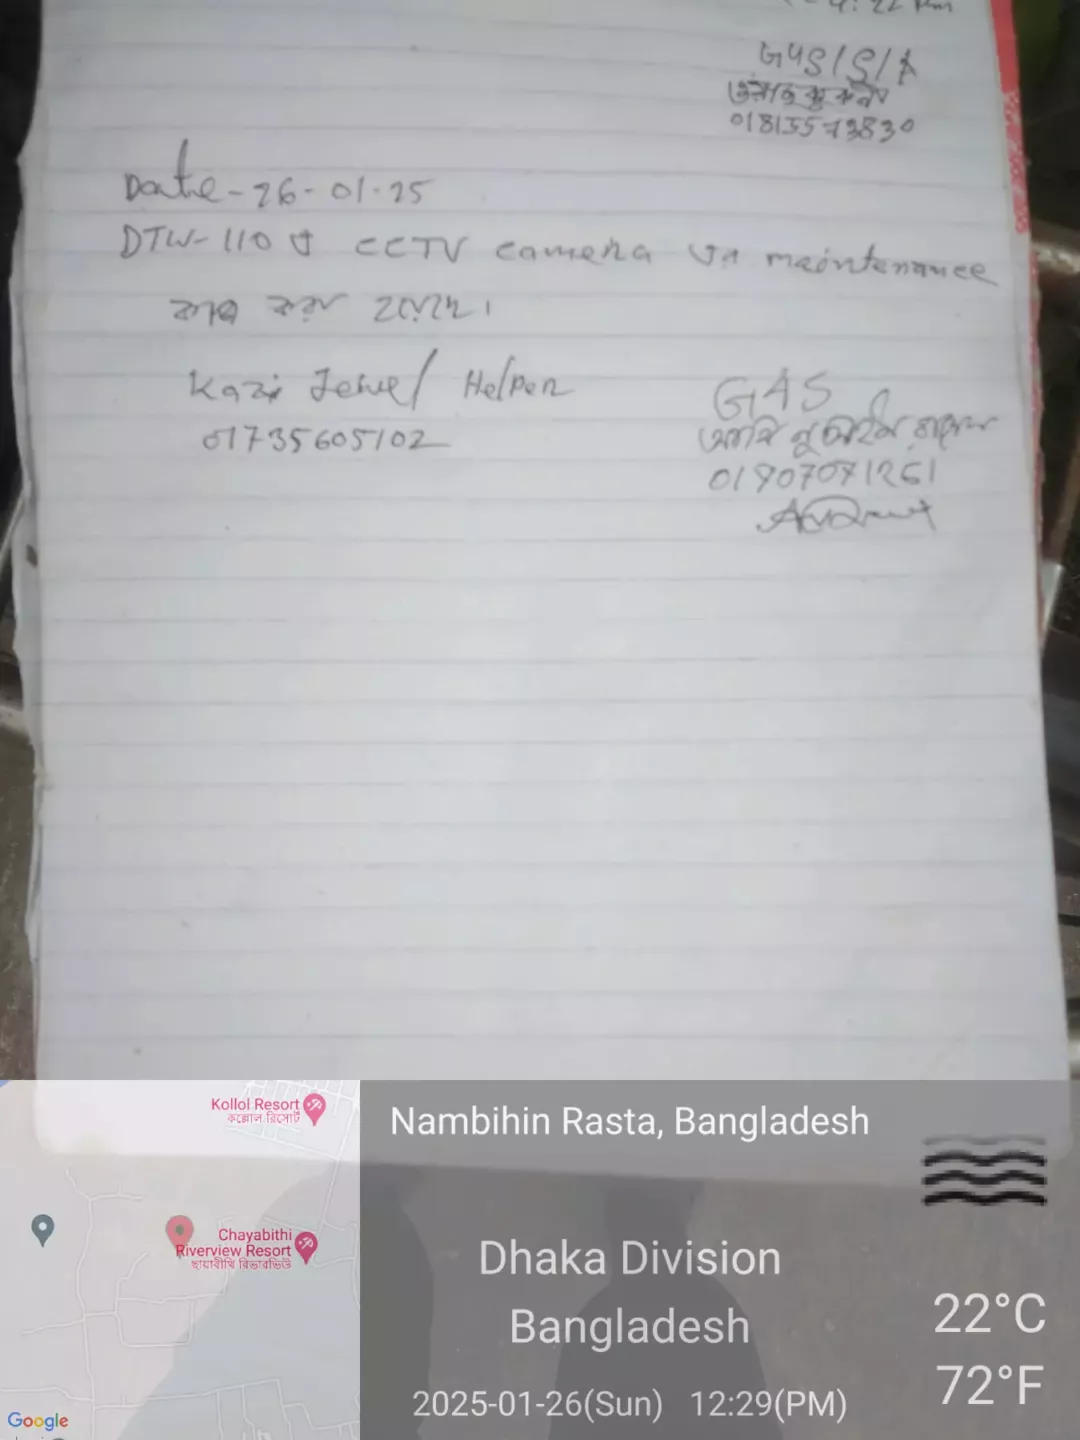 Date-26-01-25
DTW-110 এ CCTV camera এর maintenance
কাজ করা হয়েছে।
Kazi Jewel/ Helper
01735605102
GAS
01907071261
Kollol Resort
কল্লোল রিসোর্ট
Chayabithi
Riverview Resort
ছায়াবীথি রিভারভিউ
Google
Nambihin Rasta, Bangladesh
Dhaka Division
Bangladesh
2025-01-26(Sun) 12:29(PM)
22°C
72°F